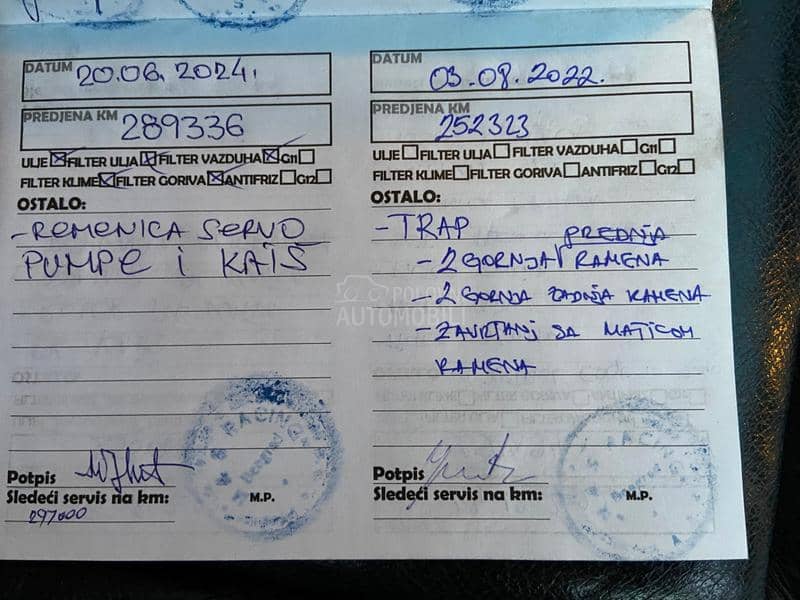 DATUM 20.06.2024.
PREDJENA KM 289336
ULJE FILTER ULJA FILTER VAZDUHA G11
FILTER KLIME FILTER GORIVA ANTIFRIZ G12
OSTALO:
- REMENICA SERVO
PUMPE I KAIŠ
Potpis
Sledeći servis na km:
297000
M.P.
DATUM 03.08.2022.
PREDJENA KM 252323
ULJE FILTER ULJA FILTER VAZDUHA G11
FILTER KLIME FILTER GORIVA ANTIFRIZ G12
OSTALO:
- TRAP
- 2 GORNJA PREDNJA RAMENA
- 2 GORNJA ZADNJA RAMENA
- ZAVRTANJ SA MATICOM
RAMENA
Potpis
Sledeći servis na km:
M.P.
POLOVNI
AUTOMOBILI
RACING
Beograd